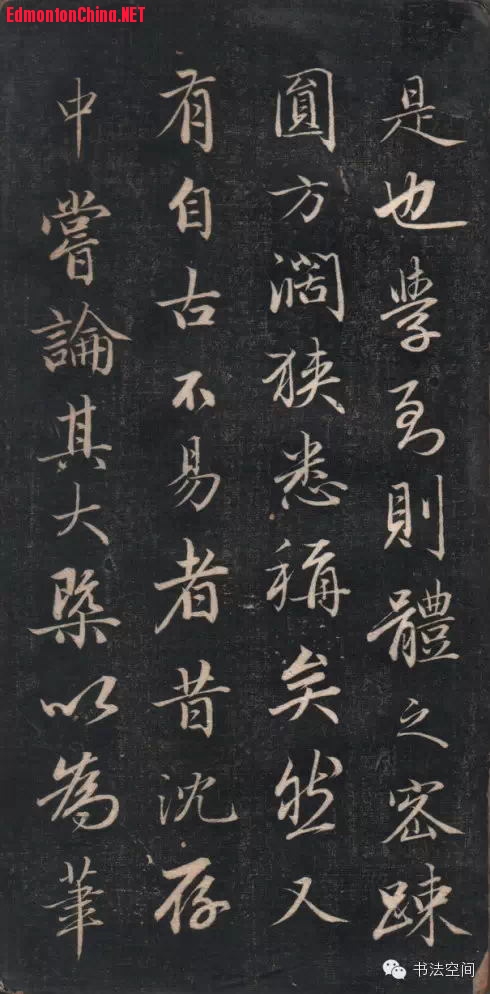 EdmontonChina.NET
是也學至則體之密踈
圓方濶狹悉稱矣然又
有自古不易者昔沈存
中嘗論其大槩以為筆
书法空间